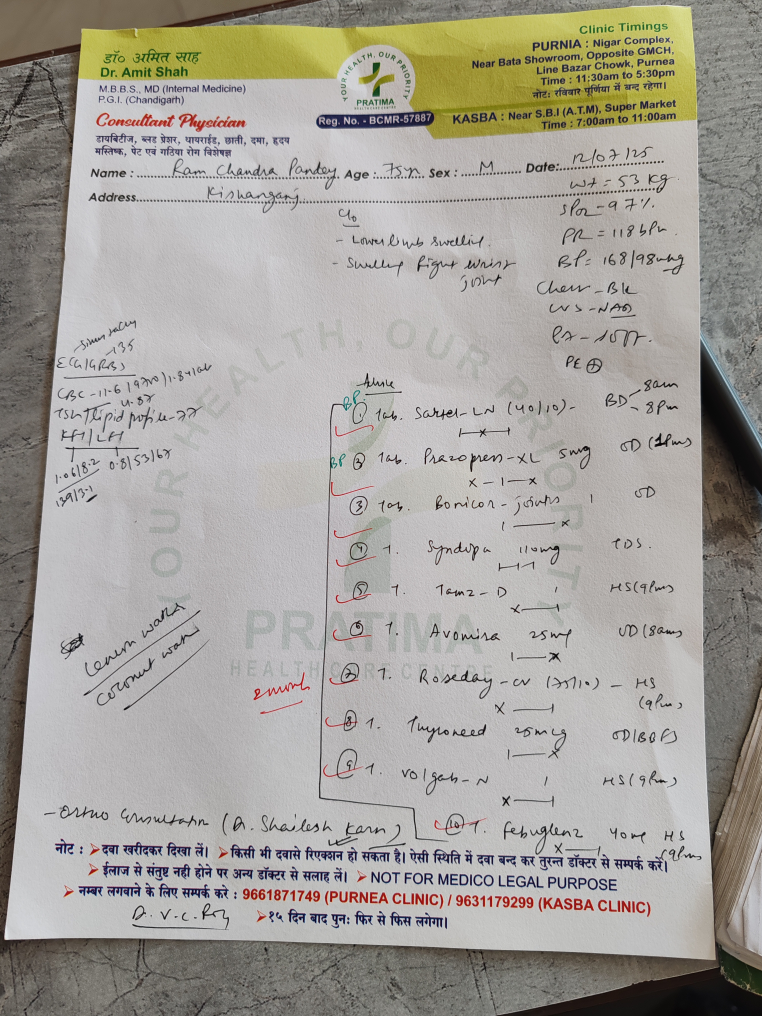 डॉ० अमित साह
Dr. Amit Shah
M.B.B.S., MD (Internal Medicine)
P.G.I. (Chandigarh)
Consultant Physician
डायबिटीज, ब्लड प्रेशर, थायराईड, छाती, दमा, हृदय
मस्तिष्क, पेट एवं गठिया रोग विशेषज्ञ
YOUR HEALTH, OUR PRIORITY
PRATIMA
HEALTH CARE CENTRE
Reg. No. - BCMR-57887
Clinic Timings
PURNIA : Nigar Complex,
Near Bata Showroom, Opposite GMCH,
Line Bazar Chowk, Purnea
Time : 11:30am to 5:30pm
नोट: रविवार पूर्णिया में बन्द रहेगा।
KASBA : Near S.B.I (A.T.M), Super Market
Time : 7:00am to 11:00am
Name : Ram Chandra Pandey Age : 75yr Sex : M Date: 12/07/25
Address Kishanganj
Wt = 53 kg
SPO2 - 97%
PR = 118 bpm
BP = 168/98 mmHg
Chest - BK
CVS - NAD
PE +
C/o
- Lower limb swelling.
- Swelling Right wrist
joint
ECG/GRBS
135
CBC - 11.6/9700/1.84 lak
4.87
TSH/Lipid profile - 77
KFT/LFT
1.06/8.2 0.8/53/67
139/3.1
Lemon water
coconut water
BP ① Tab. Sartel-LN (40/10) - BD 8am
8pm
BP ② Tab. Prazopress-XL 5mg OD (1pm)
③ Tab. Bonicor-joints 1 OD
④ T. Syndopa 110mg TDS.
⑤ T. Tamz-D 1 HS (9pm)
⑥ T. Avomira 25mg OD (8am)
⑦ T. Roseday-CV (75/10) - HS
(9pm)
⑧ T. Thyroneed 25mcg OD (BBF)
⑨ T. Volgab-N 1 HS (9pm)
⑩ T. Febuglenz 40mg HS
(9pm)
2 month
- Ortho Consultation (Dr. Shailesh Karn)
नोट : ➤दवा खरीदकर दिखा लें। ➤किसी भी दवासे रिएक्शन हो सकता है। ऐसी स्थिति में दवा बन्द कर तुरन्त डॉक्टर से सम्पर्क करें।
➤ईलाज से संतुष्ट नही होने पर अन्य डॉक्टर से सलाह लें। ➤NOT FOR MEDICO LEGAL PURPOSE
➤नम्बर लगवाने के लिए सम्पर्क करे : 9661871749 (PURNEA CLINIC) / 9631179299 (KASBA CLINIC)
D. V. C. Roy ➤१५ दिन बाद पुनः फिर से फिस लगेगा।
YOUR HEALTH, OUR PRIORITY
PRATIMA
HEALTH CARE CENTRE